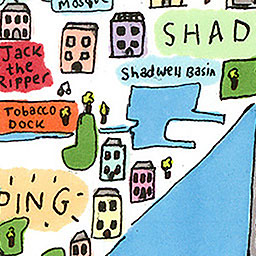 Mosque
SHAD
Jack
the
Ripper
Shadwell Basin
Tobacco
Dock
PING